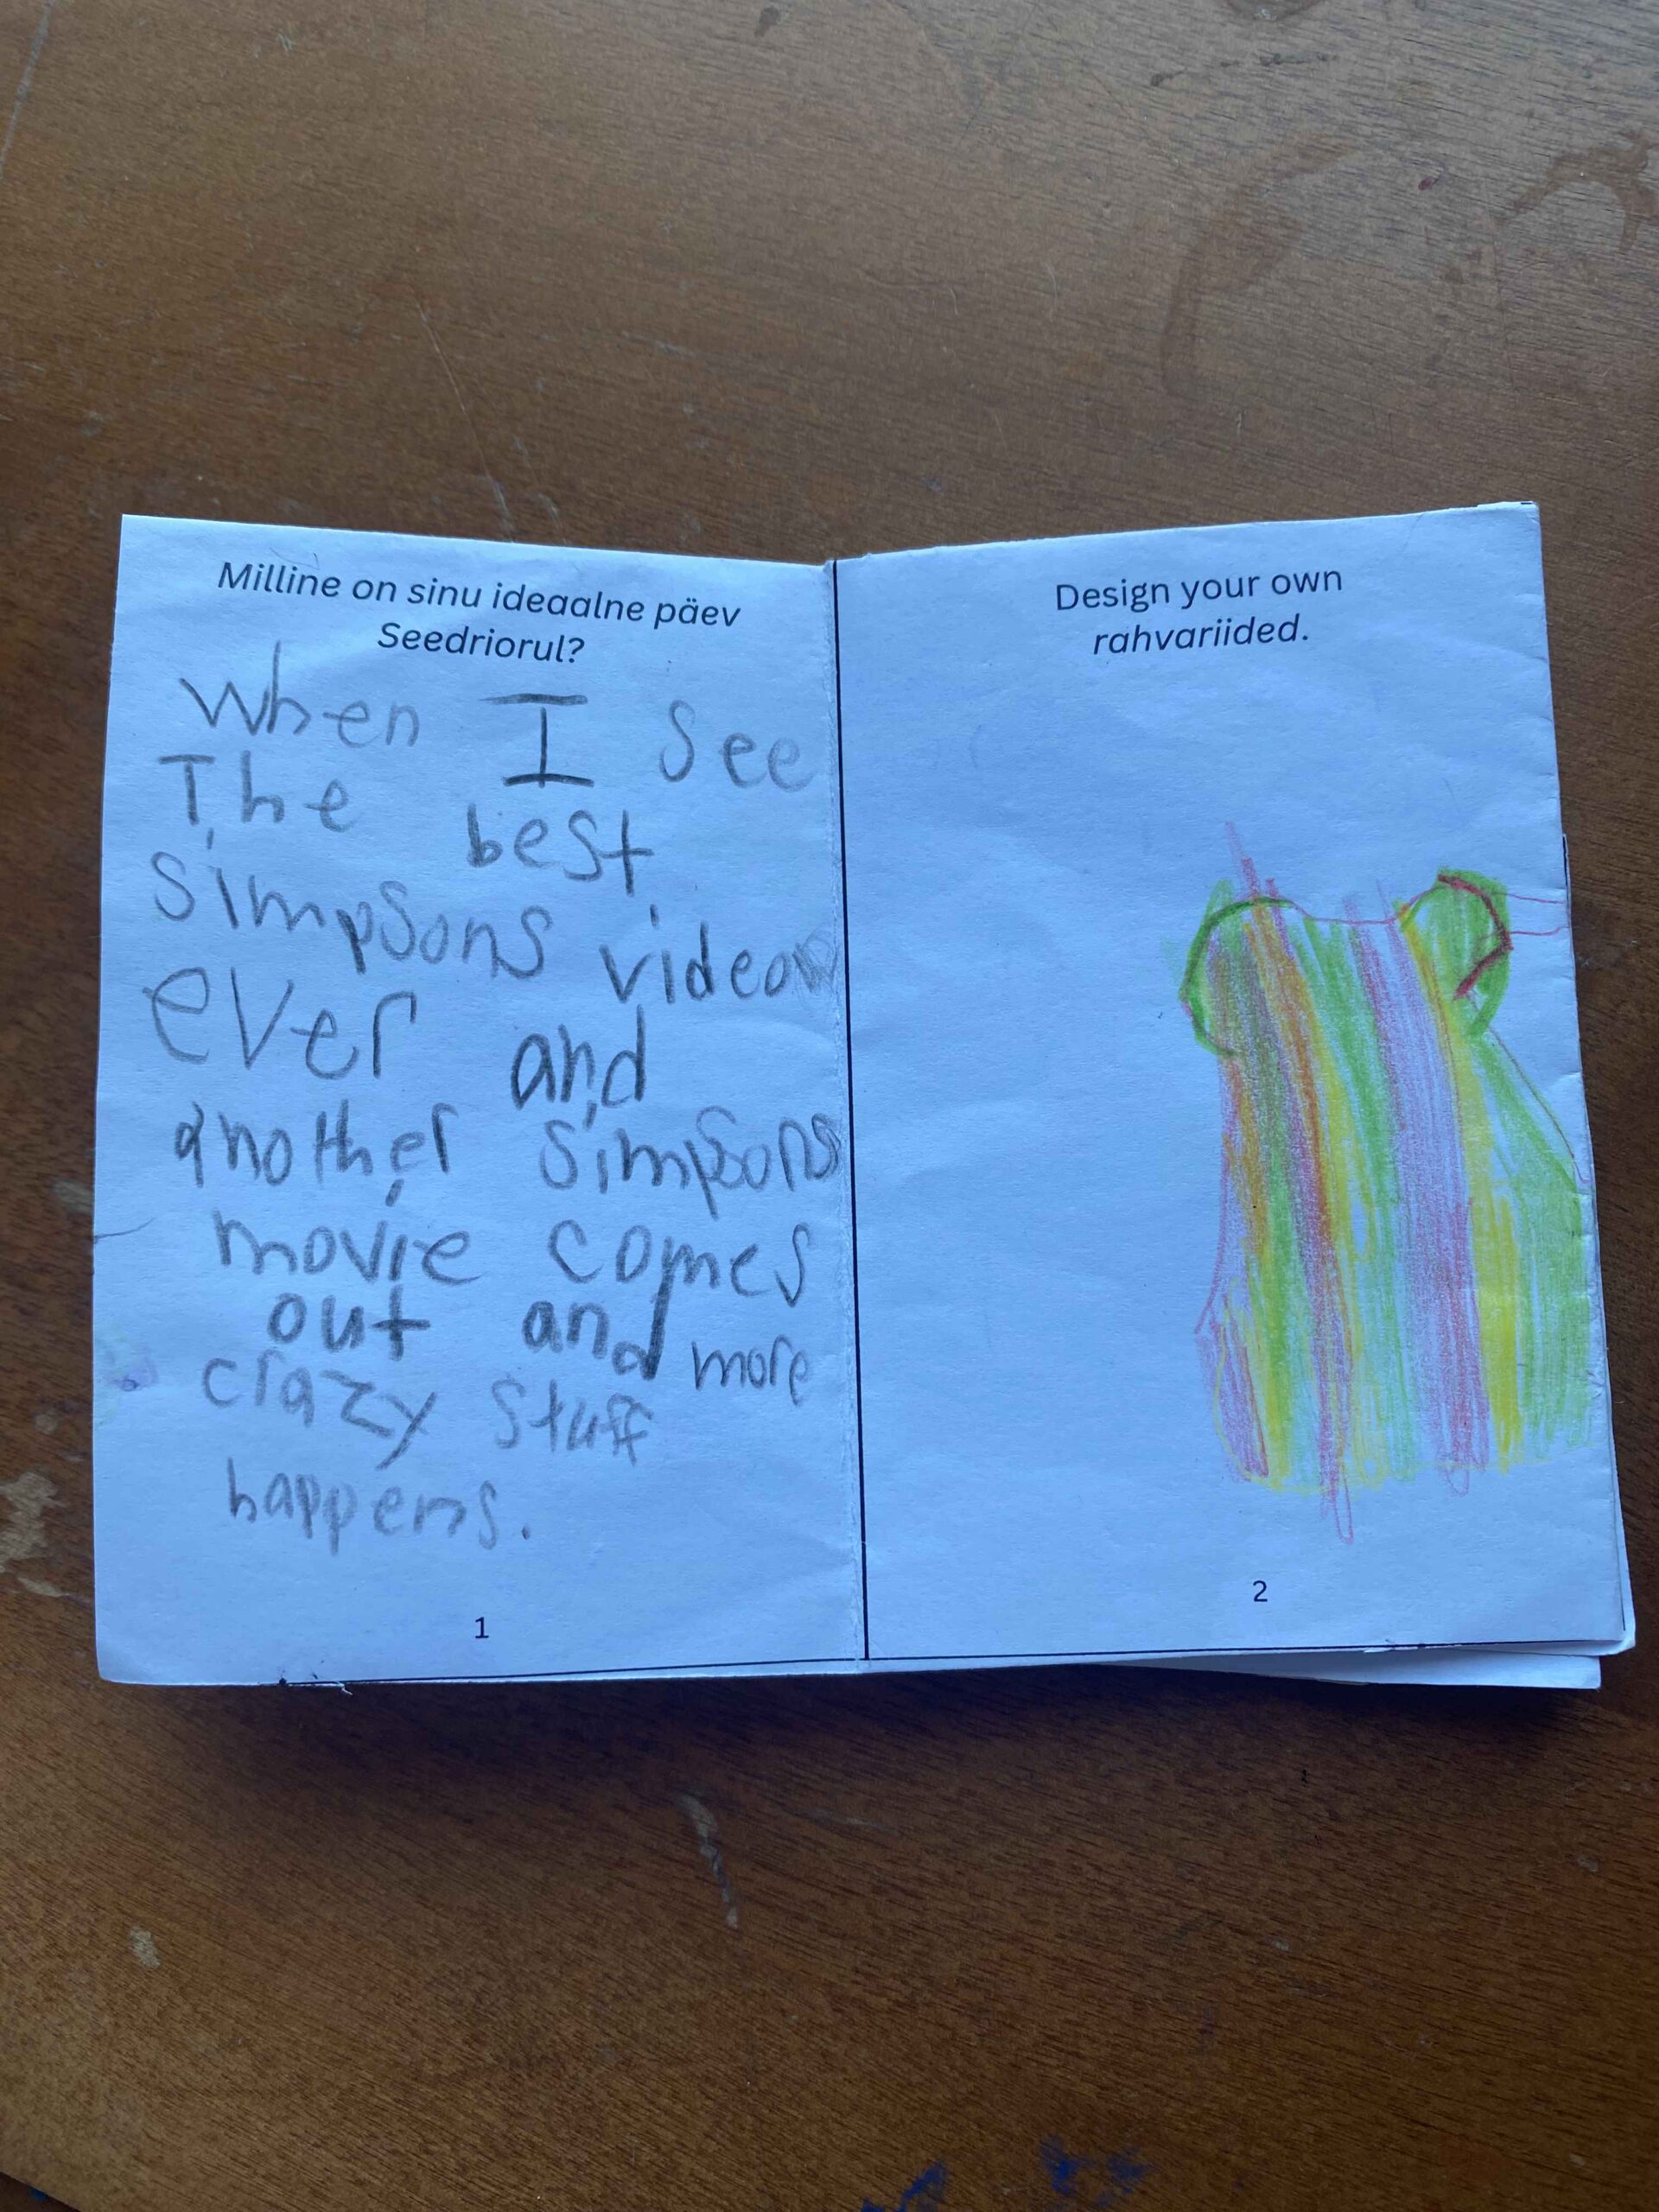 Milline on sinu ideaalne päev
Seedriorul?
When I see
The best
simpsons video
ever and
another simpsons
movie comes
out and more
crazy stuff
happens.
1
Design your own
rahvariided.
2